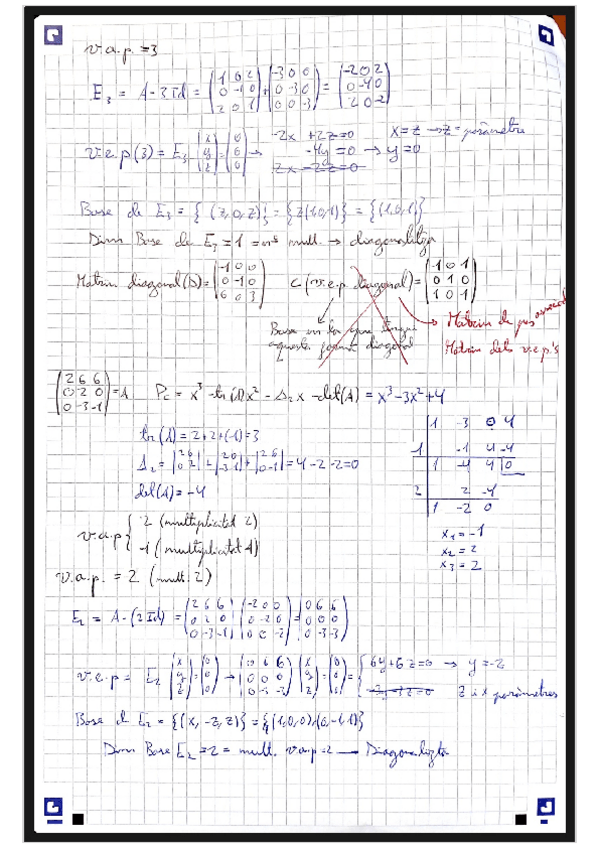 v.a.p. = 3
E₃ = A - 3Id = (1 0 2 / 0 -1 0 / 2 0 1) + (-3 0 0 / 0 -3 0 / 0 0 -3) = (-2 0 2 / 0 -4 0 / 2 0 -2)
v.e.p(3) = E₃ (x / y / z) = (0 / 0 / 0) → -2x +2z=0 x=z → z = paràmetre
-4y=0 → y=0
2x -2z=0
Base de E₃ = { (z,0,z)} = {z(1,0,1)} = {(1,0,1)}
Dim Base de E₃ = 1 = mult. → diagonalitza
Matriu diagonal (D) = (-1 0 0 / 0 -1 0 / 0 0 3) C (v.e.p. diagonal) = (-1 0 1 / 0 1 0 / 1 0 1)
Base en la que tingui
aquesta forma diagonal
Matriu de pas
Matriu dels v.e.p's
(2 6 6 / 0 2 0 / 0 -3 -1) = A Pc = x³ - tr(A)x² - Δ₂x - det(A) = x³-3x²+4
tr(A) = 2+2+(-1)=3
Δ₂ = |2 6 / 0 2| + |2 0 / -3 -1| + |2 6 / 0 -1| = 4-2-2=0
det(A) = -4
1 -3 0 4
-1 -1 4 -4
1 -4 4 0
2 2 -4
1 -2 0
x₁ = -1
x₂ = 2
x₃ = 2
v.a.p { 2 (multiplicitat 2)
-1 (multiplicitat 1)
v.a.p. = 2 (mult. 2)
E₂ = A - (2Id) = (2 6 6 / 0 2 0 / 0 -3 -1) (-2 0 0 / 0 -2 0 / 0 0 -2) = (0 6 6 / 0 0 0 / 0 -3 -3)
v.e.p = E₂ (x / y / z) = (0 / 0 / 0) → (0 6 6 / 0 0 0 / 0 -3 -3) (x / y / z) = (0 / 0 / 0) = { 6y+6z=0 → y=-z
-3y-3z=0 z i x paràmetres
Base d E₂ = {(x, -z, z)} = {(1,0,0),(0,-1,1)}
Dim Base E₂ = 2 = mult. v.a.p=2 → Diagonalitza